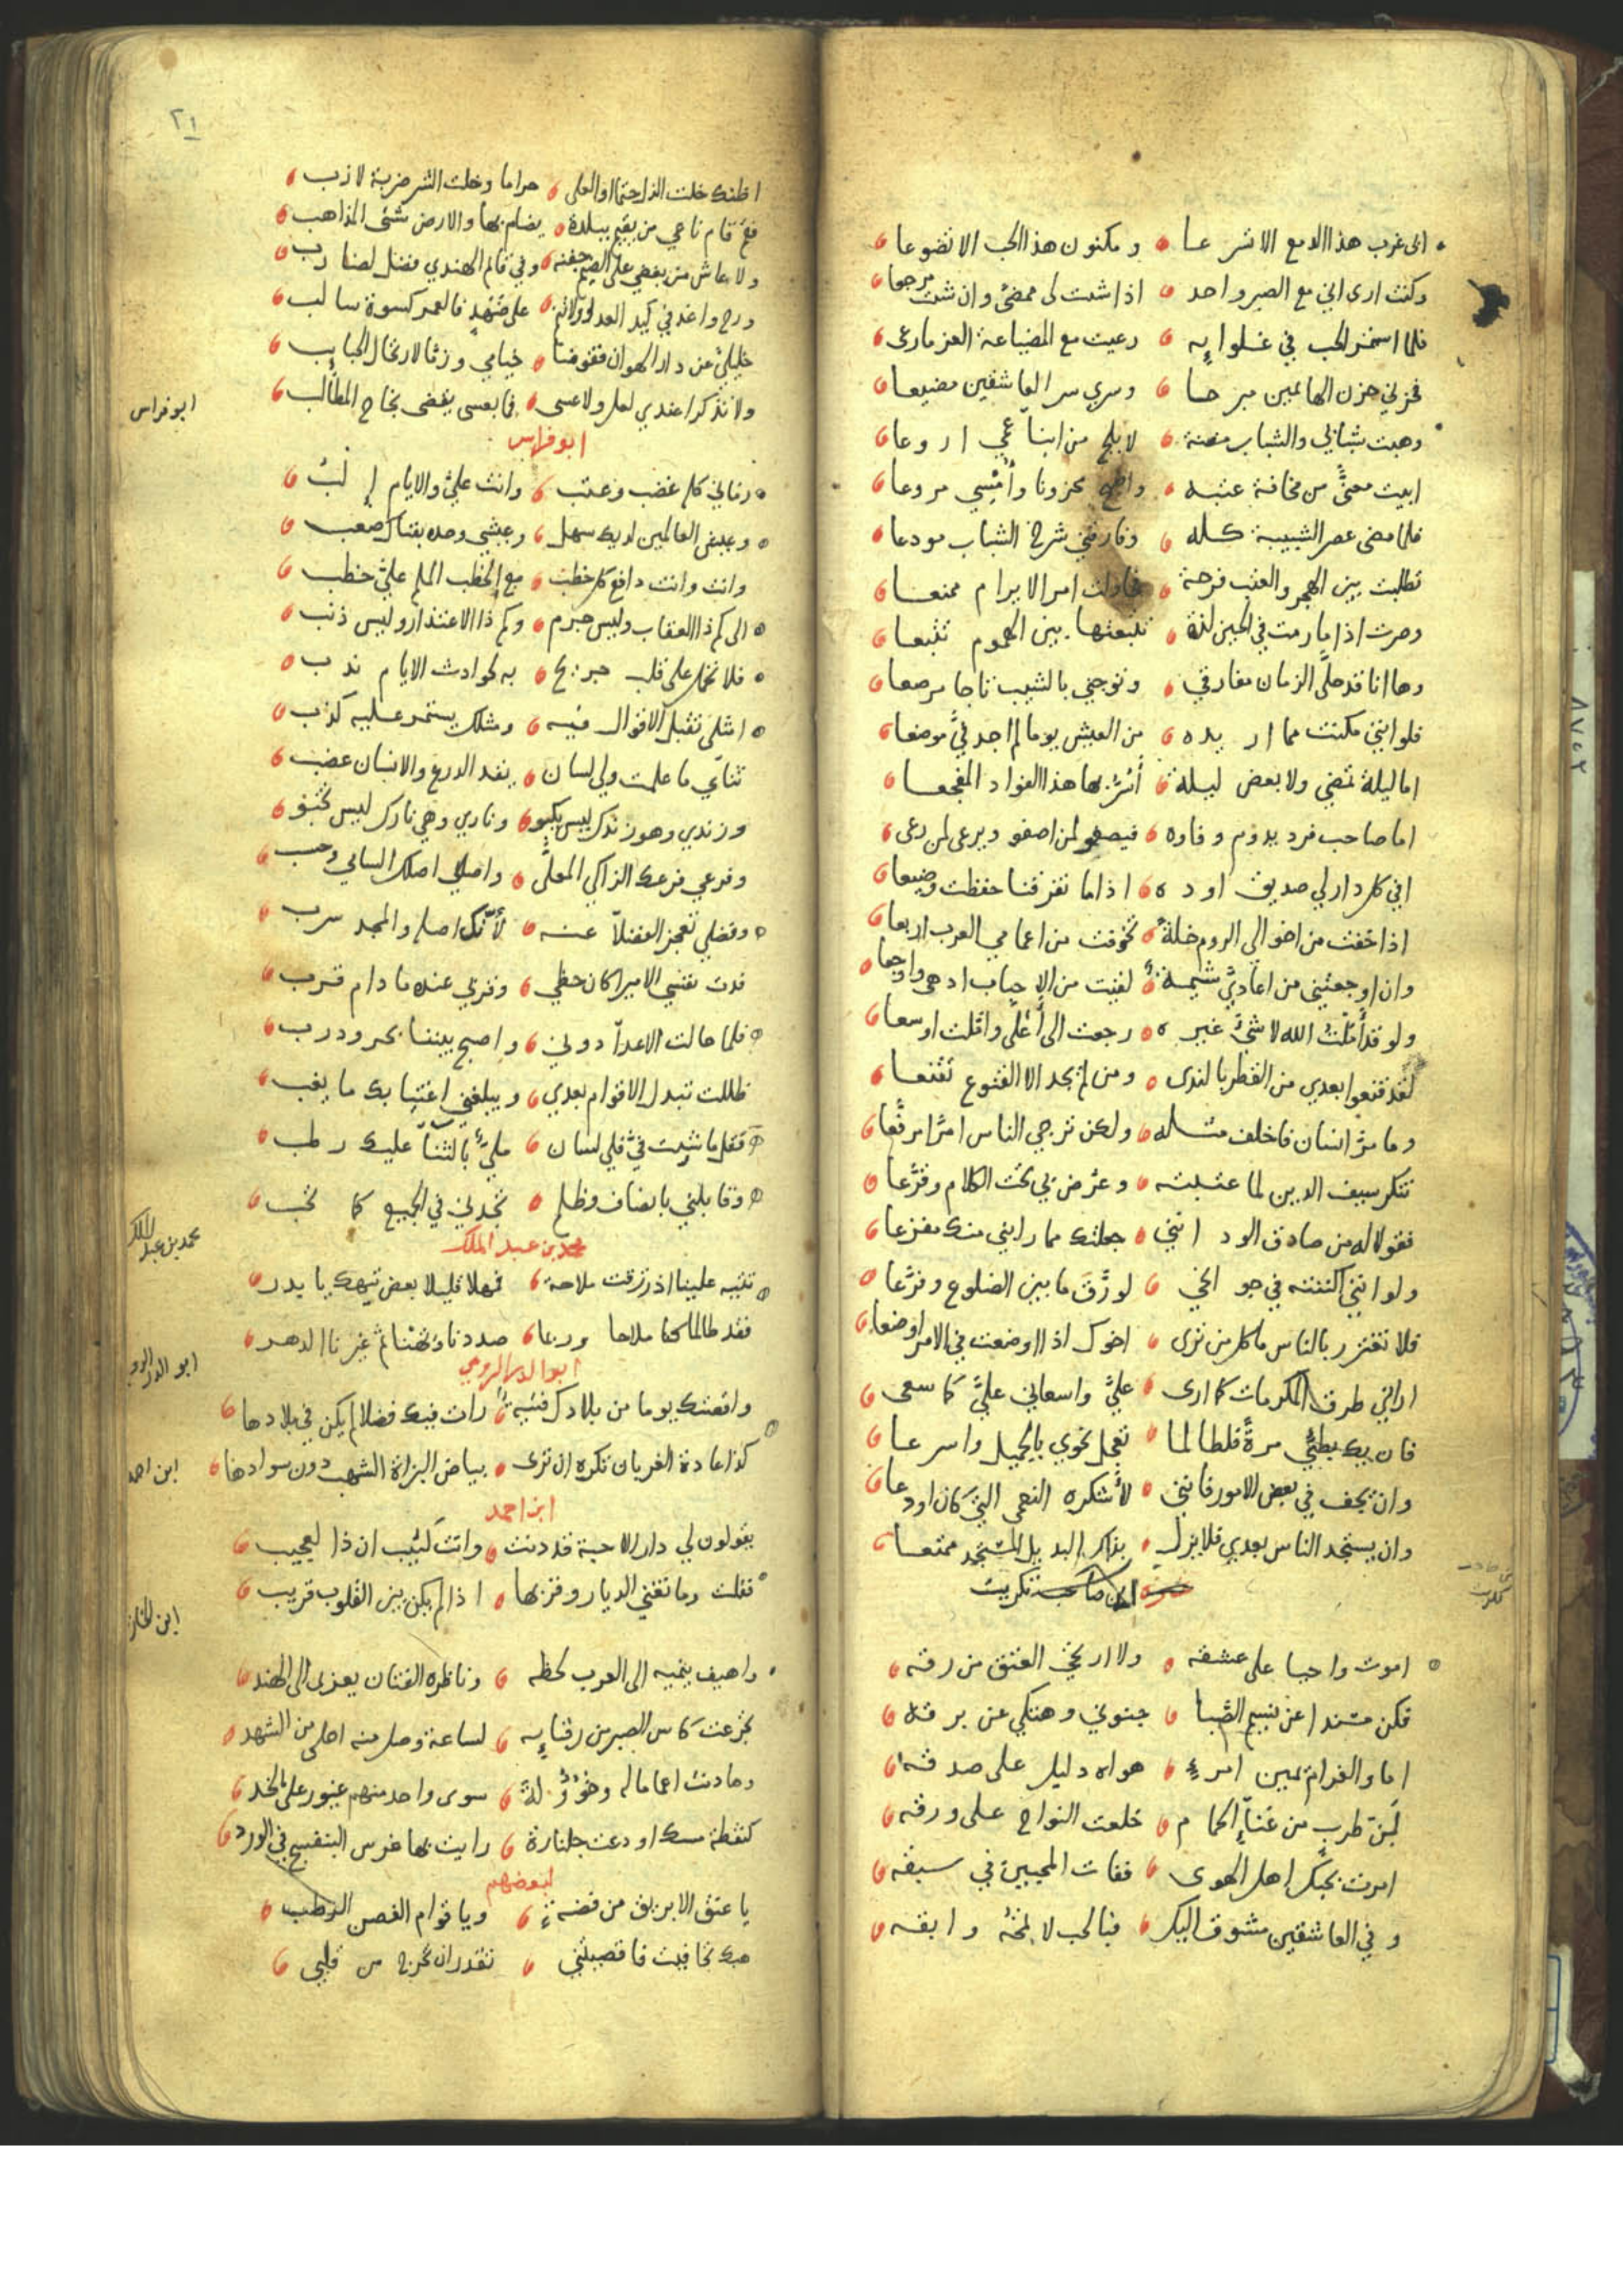 ابى غرب هذا الدمع الا تسرعا ومكنون هذا الحب الا تضوعا
وكنت ارى اني مع الصبر واحد اذا شئت لى ممضىً وان شئت مرجعا
فلما استمر الحب في غلوايه رعيت مع المضياعة الغر ما رعى
فحزني حزن الهايمين مبرحا وسري سر العاشقين مضيعا
وهبت شبابي والشباب مضنة لابلج من ابناء عمي اروعا
ابيت معنىً من مخافة عتبه واصبح محزونا وأمسي مروعا
فلما مضى عصر الشبيبة كله وفارقني شرخ الشباب مودعا
تطلبت بين الهجر والعتب فرجة فحاولت امرا لا يرام ممنعا
وصرت اذا ما رمت في الحين لذة تتبعتها بين الهموم تتبعا
وها انا قد حلى الزمان مفارقي وتوجني بالشيب تاجا مرصعا
فلو انني مكنت مما اريده من العيش يوما لم اجد فيَّ موضعا
اما ليلة تمضي ولا بعض ليلة أسرّ بها هذا الفواد المفجعا
اما صاحب فرد يدوم وفاوه فيصفو لمن اصفو ويرعى لمن رعى
افي كل دار لي صديق اوده اذا ما تفرقنا حفظت وضيعا
اذا خفت من اخوالي الروم خلة تخوفت من اعمامي العرب اربعا
وان اوجعتني من اعاديّ شيمة لقيت من الاحباب ادهى واوجعا
ولو قد أمّلتُ الله لا شيَ غيره رجعت الى أعلى وامّلت اوسعا
لقد قنعوا بعدي من القطر بالندى ومن لم يجد الا القنوع تقنعا
وما مرّ انسان فاخلف مثله ولكن ترجي الناس امرا مرقّعا
تنكر سيف الدين لما عتبته وعرّض بي تحت الكلام وقرّعا
فقولا له من صادق الود انني جعلتك مما رابني منك مفزعا
ولو انني اكننته في جوانحي لورَّقَ ما بين الضلوع وفرّعا
فلا تغترر بالناس ما كل من ترى اخوك اذا اوضعت في الامر اوضعا
اراني طرق المكرمات كما ارى عليَّ واسعاني عليَّ كما سعى
فان يك بطئٌ مرةً فلطالما تعجل نحوي بالجميل واسرعا
وان يجف في بعض الامور فانني لأشكره النعمى التي كان اودعا
وان يستجد الناس بعدي فلا يزل بذاك البديل المستجد ممتعا
ابن صاحب تكريت
تكريت
اموت واحيا على عشقه ولا ارتجي العتق من رقه
فكن مسندا عن نسيم الصّبا جنوني وهتكي عن برقه
اما والغرام يمين امرءٍ هواه دليل على صدقه
لَمِن طرب من غناءِ الحمام خلعت النواح على ورقه
امرت بحبك اهل الهوى ففات المحبين في سبقه
وفي العاشقين مشوق اليك فبالحب لا تمحُه وابقه
٢١
اظنك خلت الذل حتما او العلى حراما وخلت الشر ضربة لازب
فمَ قام ناعي من يقيم ببلدة يضام بها والارض شتى المذاهب
ولا عاش من يغضي على الضيم جفنه وفي قايم الهندي فضل لضارب
ورح واغد في كيد العدو ولا تنم على ضهد فالعمر كسوة سالب
خليليّ عن دار الهوان فقوضا خيامي وزمّا لارتحال الحبايب
ولا تذكرا عندي لعل ولا عسى فما بعسى يقضى نجاح المطالب
ابو فراس
ابو فراس
زماني كل غضب وعتب وانت عليّ والايام إلبُ
وعيش العالمين لديك سهل وعيشي وحده بفناك صعب
وانت وانت دافع كل خطب مع الخطب الملم عليّ خطب
الى كم ذا العقاب وليس جرم وكم ذا الاعتذار وليس ذنب
فلا تحمل على قلب جريح به لحوادث الايام ندب
امثلي تقبل الاقوال فيه ومثلك يستمر عليه كذب
ثنائي ما علمت ولي لسان يقد الدرع والانسان عضب
وزندي وهو زندك ليس يكبو وناري وهي نارك ليس تخبو
وفرعي فرعك الزاكي المعلّى واصلي اصلك السامي وحسب
وفضلي تعجز الفضلآ عنه لأنّك اصله والمجد سرب
فدت نفسي الامير كان حظي وقربي عنده ما دام قرب
فلما حالت الاعدآ دوني واصبح بيننا بحر ودرب
ظللت تبدل الاقوام بعدي ويبلغني اغتيابك ما يغب
فقل ما شيت فيَّ فلي لسان مليءٌ بالثناء عليك رطب
وقابلني بانصاف وظلم تجدني في الجميع كما تحب
محمد بن عبد الملك
محمد بن عبد الملك
تتيه علينا اذ رزقت ملاحة فمهلا قليلا بعض تيهك يا بدر
فقد طالما كنا ملاحا وربما صددنا وتهنا ثم غيرنا الدهر
ابو الدر الرومي
ابو الدر الرومي
واقعتك يوما من بلادك فتية رات فيك فضلا لم يكن في بلادها
كذا عادة الغربان تكره ان ترى بياض البزاة الشهب دون سوادها
ابن احمد
ابن احمد
يقولون لي دار الاحبة قد دنت وانت كئيب ان ذا لعجيب
فقلت وما تغني الديار وقربها اذا لم يكن بين القلوب قريب
ابن الخازن
واهيف ينميه الى العرب لحظه وناظره الفتان يعزى الى الهند
تجرعت كاس الصبر من رقبايه لساعة وصل منه احلى من الشهد
وهادنت اعماما له وخؤولة سوى واحد منهم غيور على الخد
كنقطة مسك اودعت جلنارة رايت بها غرس البنفسج في الورد
لبعضهم
يا عنق الابريق من فضة ويا قوام الغصن الرطب
هبك تجافيت فاقصيتني تقدر ان تخرج من قلبي